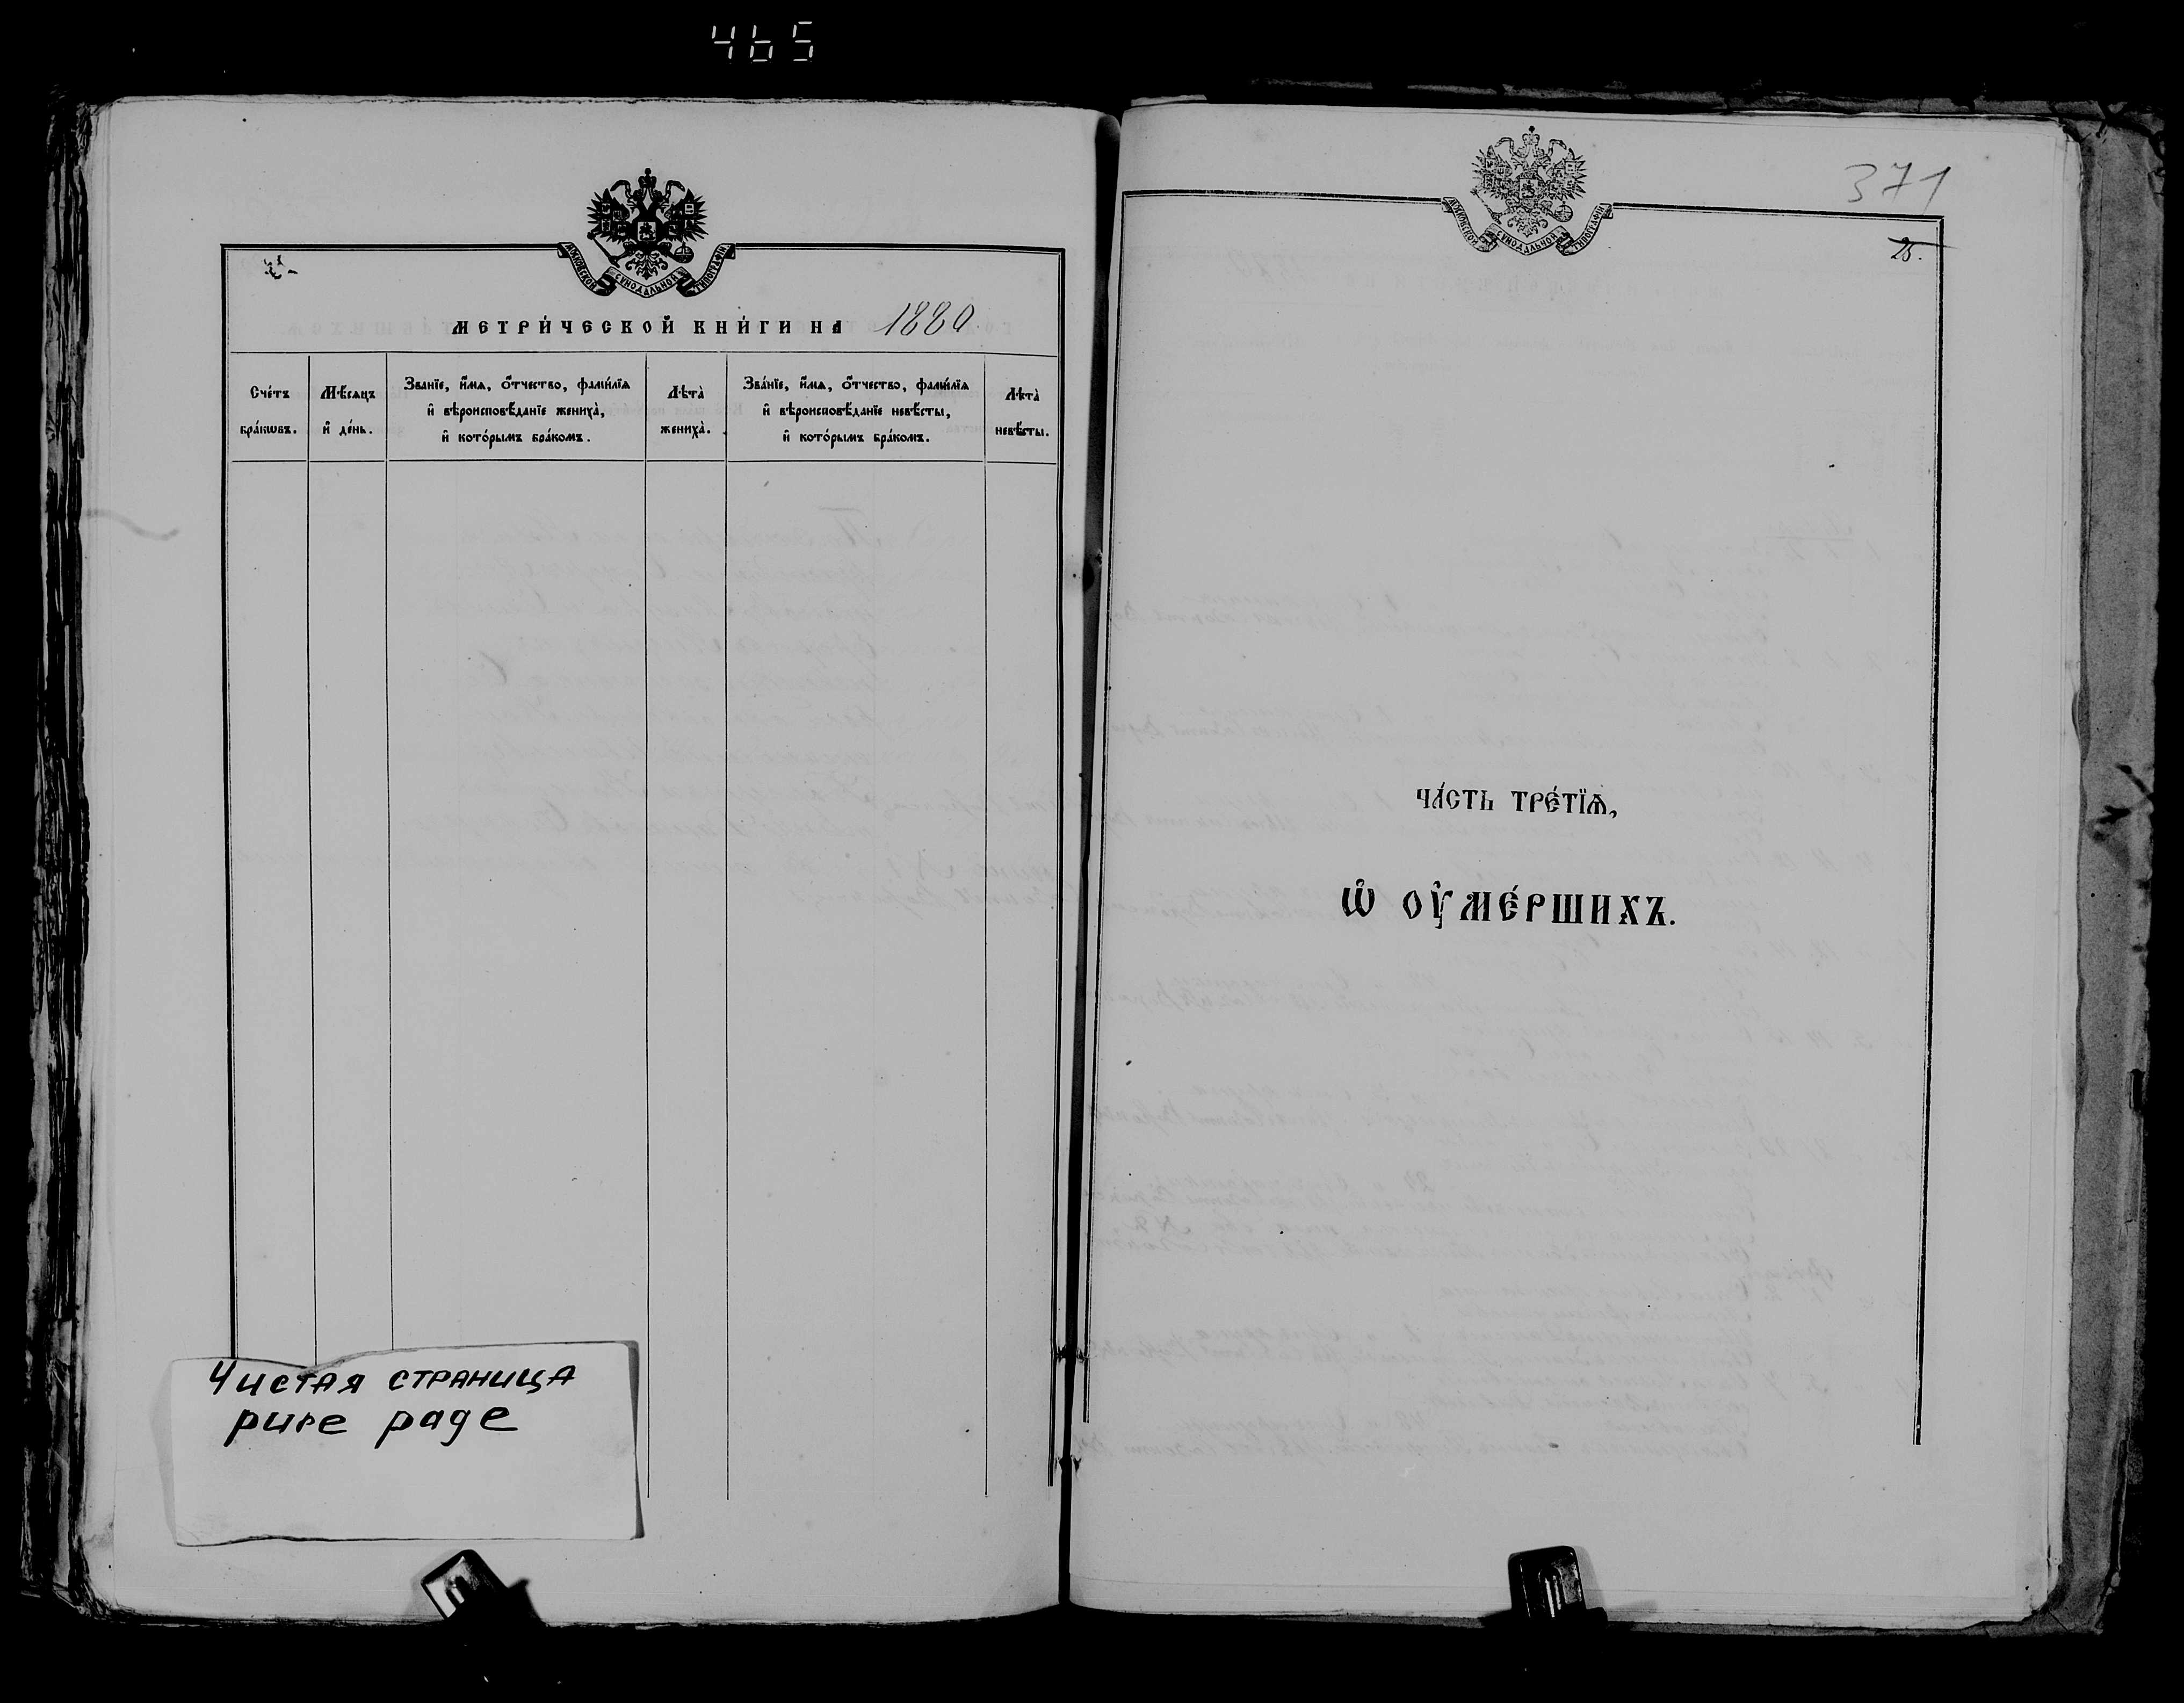 465
МОСКОВСКОЙ СУНОДАЛЬНОЙ ТИПОГРАФІИ
МЕТРИ́ЧЕСКОЙ КНИ́ГИ НА 1880
Сче́тъ бра́кѡвъ.
Мѣ́сѧцъ и҆ де́нь.
Зва́нїе, и҆́мѧ, ѻ҆́тчество, фами́лїѧ
и҆ вѣроисповѣ́данїе жениха̀,
и҆ кото́рымъ бра́комъ.
Лѣта̀ жениха̀.
Зва́нїе, и҆́мѧ, ѻ҆́тчество, фами́лїѧ
и҆ вѣроисповѣ́данїе невѣ́сты,
и҆ кото́рымъ бра́комъ.
Лѣта̀ невѣ́сты.
Чистая страница
pure page
371
МОСКОВСКОЙ СУНОДАЛЬНОЙ ТИПОГРАФІИ
25.
ЧА́СТЬ ТРЕ́ТЇѦ,
Ѡ҆ ОУ҆МЕ́РШИХЪ.